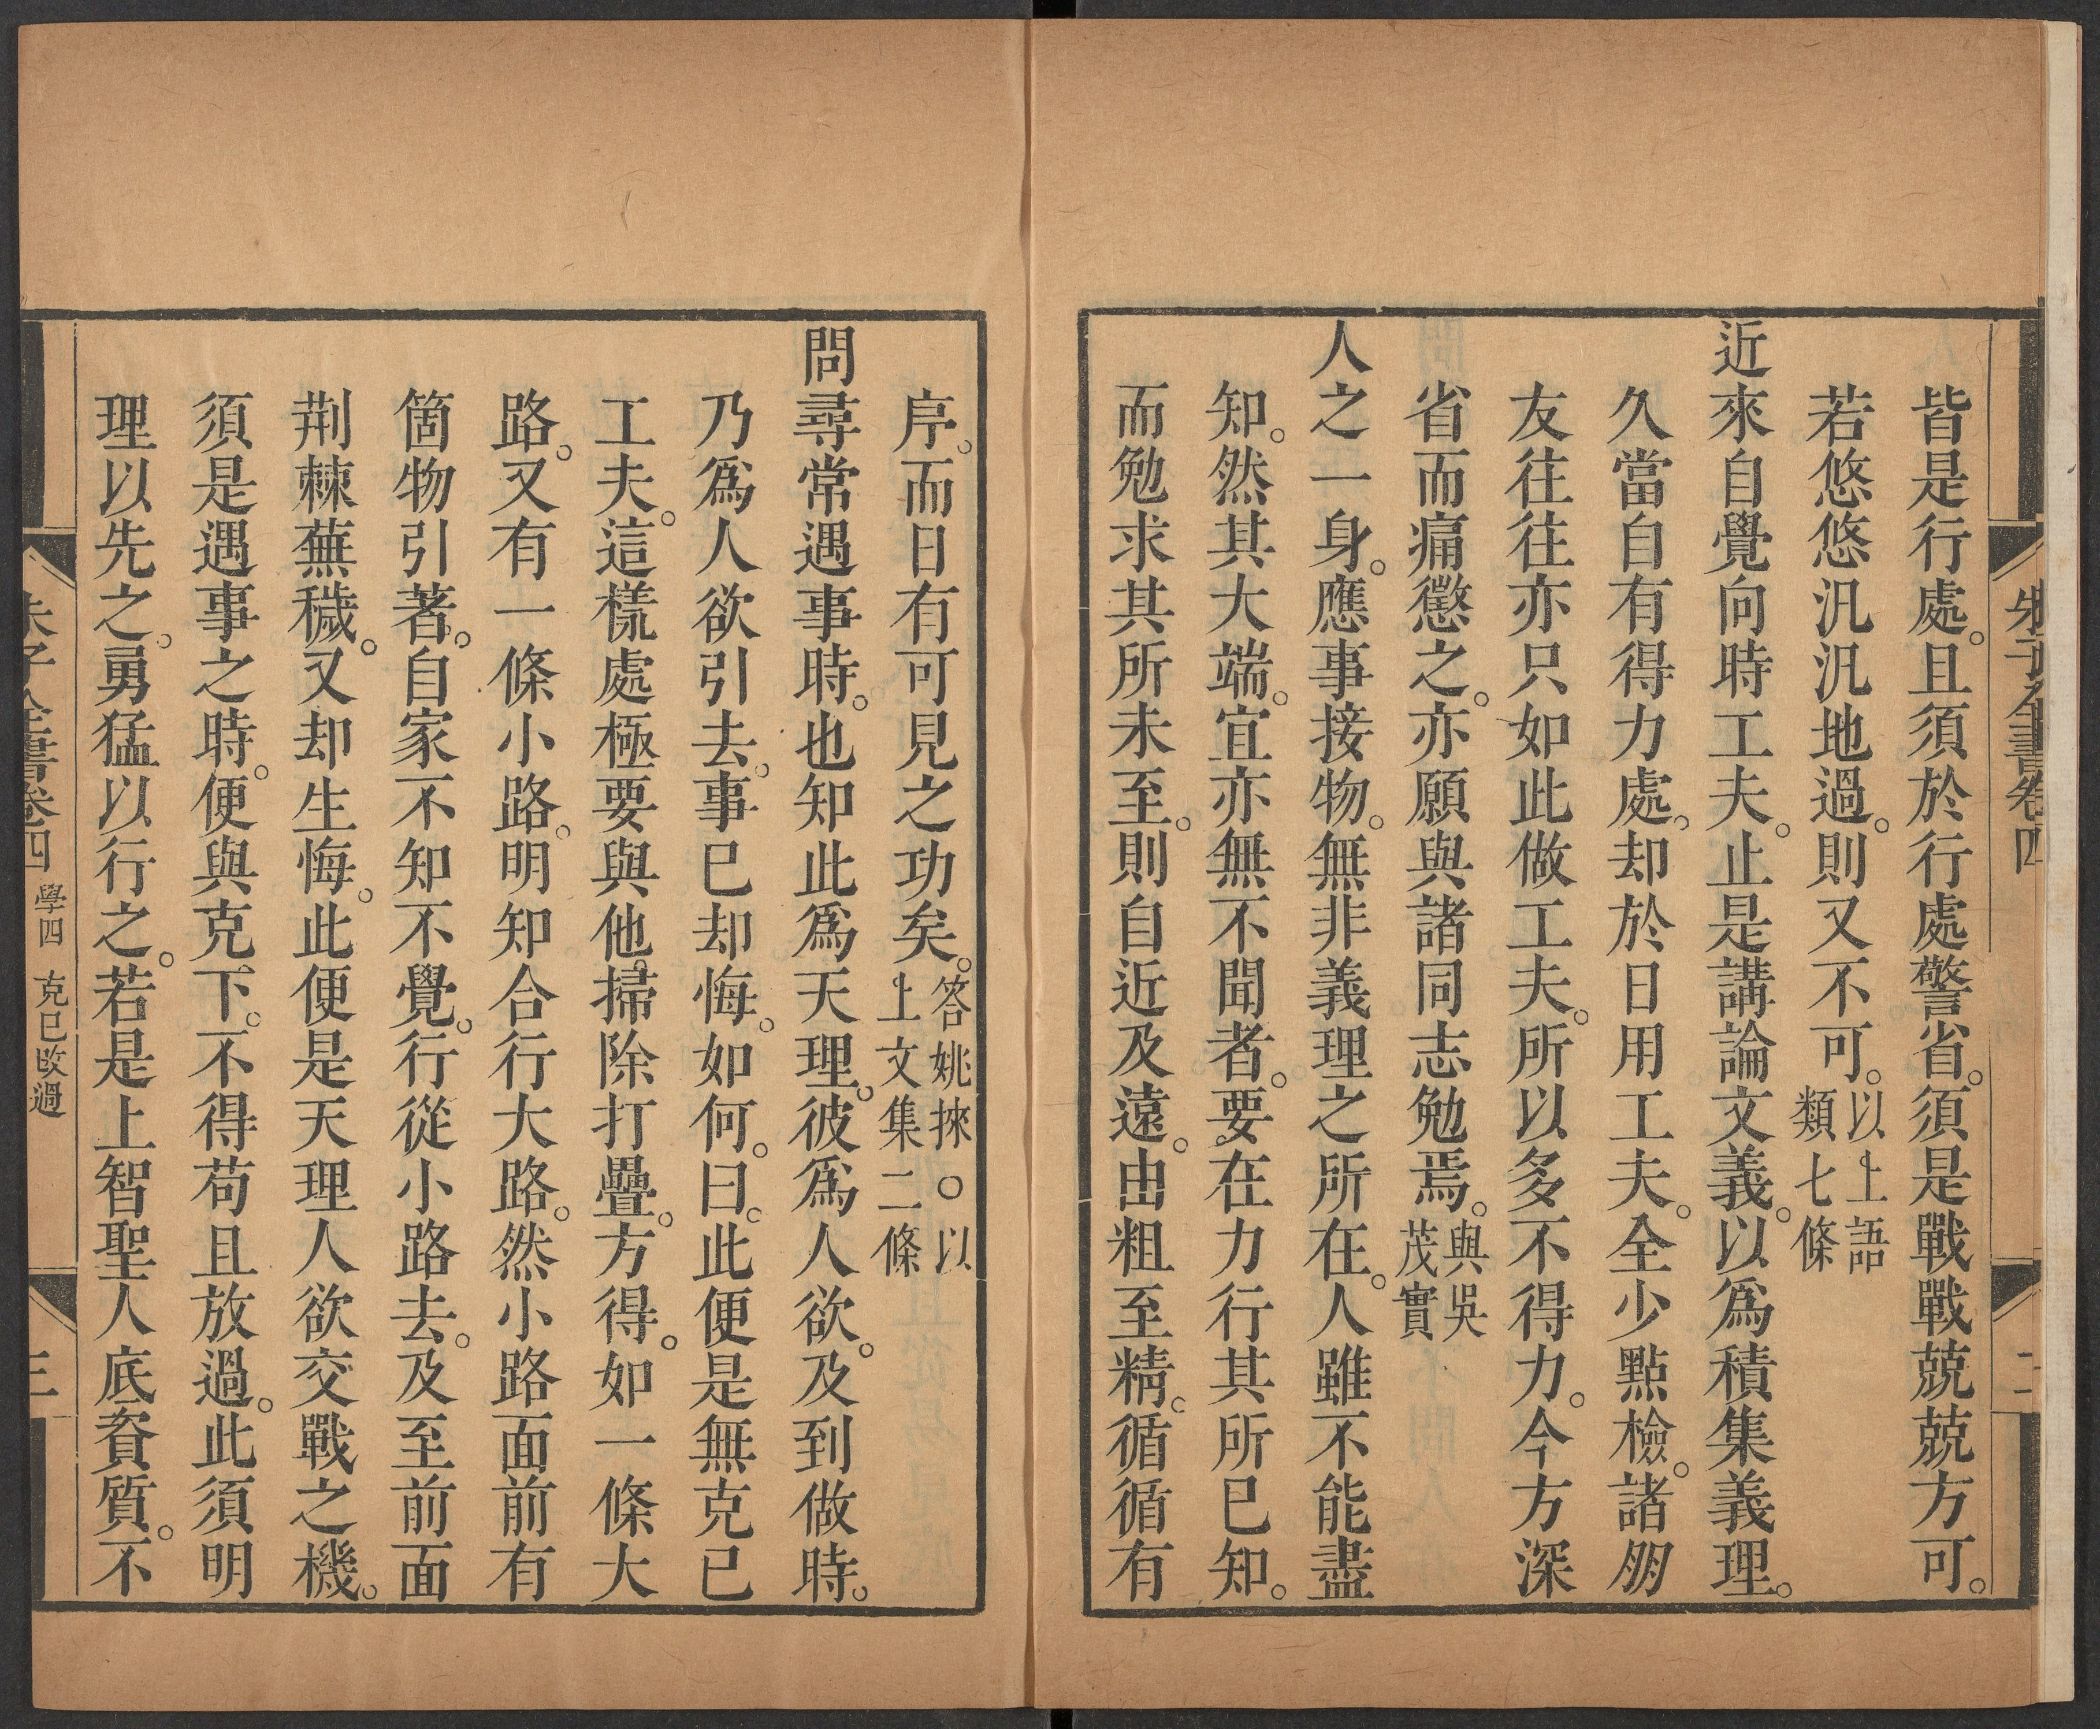 朱子全書卷四
二
皆是行處。且須於行處警省。須是戰戰兢兢方可。
若悠悠汎汎地過。則又不可。以上語類七條
近來自覺向時工夫。止是講論文義。以爲積集義理。
久當自有得力處。却於日用工夫。全少點檢。諸朋
友往往亦只如此做工夫。所以多不得力。今方深
省而痛懲之。亦願與諸同志勉焉。與吳茂實
人之一身。應事接物。無非義理之所在。人雖不能盡
知。然其大端。宜亦無不聞者。要在力行其所已知。
而勉求其所未至。則自近及遠。由粗至精。循循有
序。而日有可見之功矣。答姚掞○以上文集二條
問尋常遇事時。也知此爲天理。彼爲人欲。及到做時。
乃爲人欲引去。事已却悔。如何。曰。此便是無克己
工夫。這樣處極要與他掃除打疊。方得。如一條大
路。又有一條小路。明知合行大路。然小路面前有
箇物引著。自家不知不覺。行從小路去。及至前面
荆棘蕪穢。又却生悔。此便是天理人欲交戰之機。
須是遇事之時。便與克下。不得苟且放過。此須明
理以先之。勇猛以行之。若是上智聖人底資質。不
朱子全書卷四 學四 克已改過
三